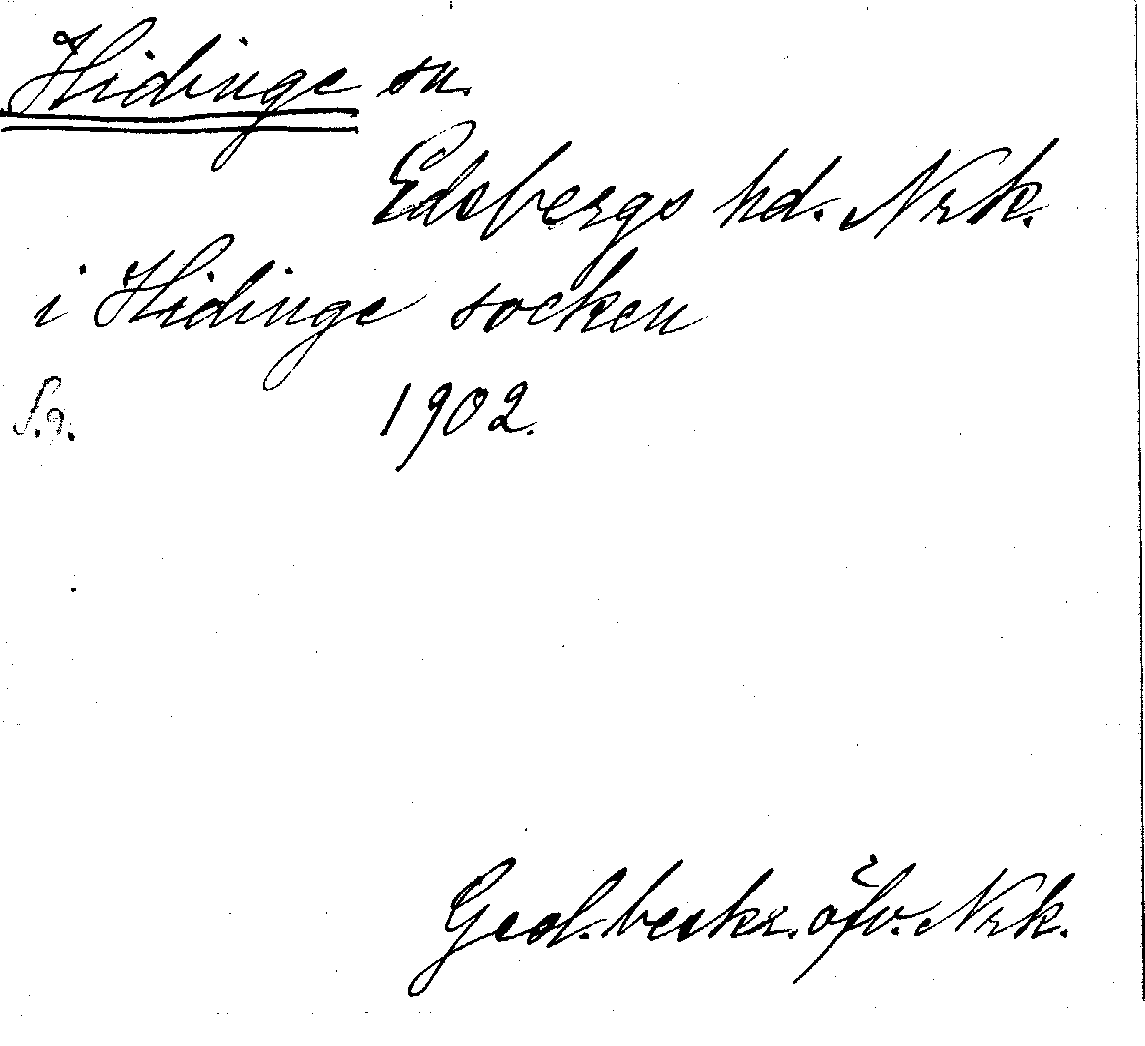 Hidinge sn.
Edsbergs hd. Nrk.
i Hidinge socken
S.9. 1902.
Geol. beskr. öfv. Nrk.